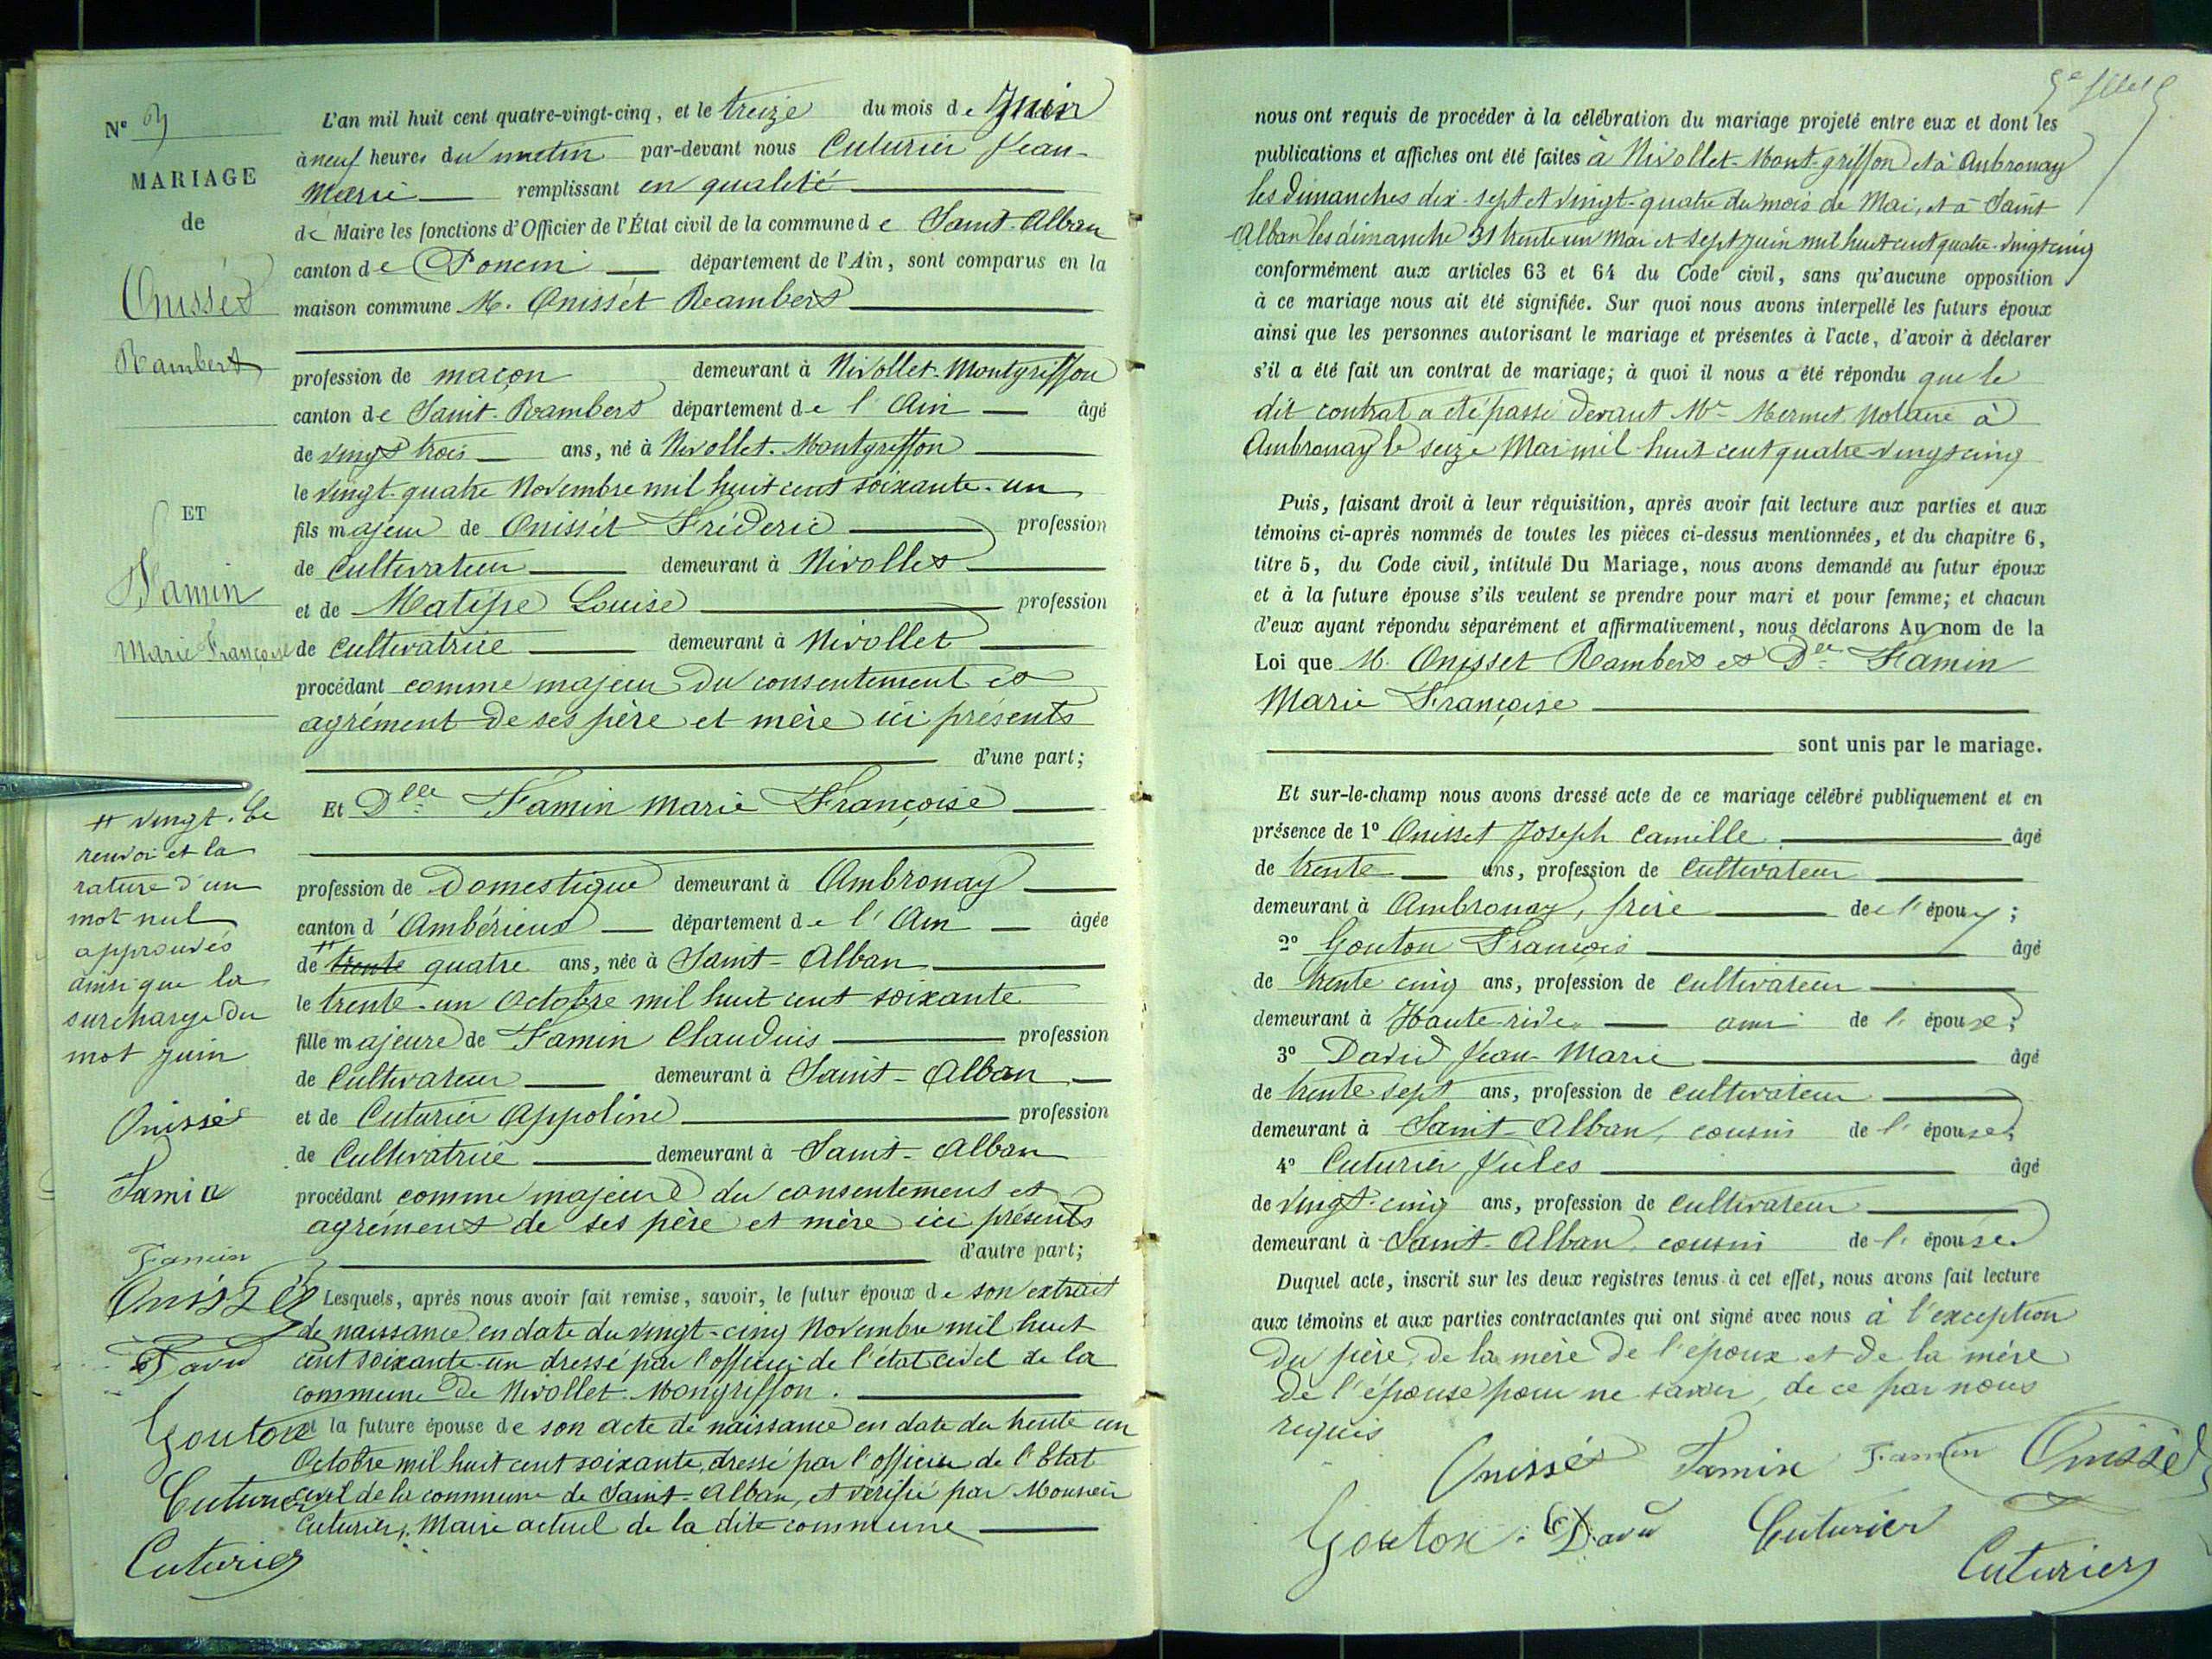 MARIAGE
de
Onisset
Rambert
ET
Famin
Marie Françoise
vingt. Le
renvoi et la
rature d'un
mot nul
approuvés
ainsi que la
surcharge du
mot juin
Famin
Gouton
Cuturier
Cuturier
L'an mil huit cent quatre-vingt-cinq, et le treize du mois de Juin
à neuf heures du matin par-devant nous Cuturier Jean-
Marie remplissant en qualité
de Maire les fonctions d'Officier de l'État civil de la commune de Saint-Alban
canton de Poncin département de l'Ain, sont comparus en la
maison commune M. Onissét Rambert
profession de maçon demeurant à Nivollet-Montgriffon
canton de Saint-Rambert département de l'Ain âgé
de vingt trois ans, né à Nivollet-Montgriffon
le vingt-quatre Novembre mil huit cent soixante-un
fils majeur de Onissét Fréderic profession
de Cultivateur demeurant à Nivollet
et de Louise profession
de cultivatrice demeurant à Nivollet
procédant comme majeur du consentement et
agrément de ses père et mère ici présents
d'une part;
Et Dlle Famin Marie Françoise
profession de Domestique demeurant à Ambronay
canton d'Ambérieux département de l'Ain âgée
de trente quatre ans, née à Saint-Alban
le trente-un Octobre mil huit cent soixante
fille majeure de Famin Claudius profession
de Cultivateur demeurant à Saint-Alban
et de Cuturier Appoline profession
de Cultivatrice demeurant à Saint-Alban
procédant comme majeure du consentement et
agrément de ses père et mère ici présents
d'autre part;
Lesquels, après nous avoir fait remise, savoir, le futur époux de son extrait
de naissance en date du vingt-cinq Novembre mil huit
cent soixante-un dressé par l'officier de l'état civil de la
commune de Nivollet-Mongriffon.
et la future épouse de son acte de naissance en date du trente un
Octobre mil huit cent soixante, dressé par l'officier de l'Etat
civil de la commune de Saint-Alban, et vérifié par Monsieur
Cuturier, Maire actuel de la dite commune
nous ont requis de procéder à la célébration du mariage projeté entre eux et dont les
publications et affiches ont été faites à Nivollet-Mont-griffon et à Ambronay
les dimanches dix-sept et vingt-quatre du mois de Mai, et à Saint
Alban les dimanche 31 trente un Mai et sept Juin mil huit cent quatre-vingt cinq
conformément aux articles 63 et 64 du Code civil, sans qu'aucune opposition
à ce mariage nous ait été signifiée. Sur quoi nous avons interpellé les futurs époux
ainsi que les personnes autorisant le mariage et présentes à l'acte, d'avoir à déclarer
s'il a été fait un contrat de mariage; à quoi il nous a été répondu que le
dit contrat a été passé devant Me Mermet Notaire à
Ambronay le seize Mai mil huit cent quatre-vingt cinq
Puis, faisant droit à leur réquisition, après avoir fait lecture aux parties et aux
témoins ci-après nommés de toutes les pièces ci-dessus mentionnées, et du chapitre 6,
titre 5, du Code civil, intitulé Du Mariage, nous avons demandé au futur époux
et à la future épouse s'ils veulent se prendre pour mari et pour femme; et chacun
d'eux ayant répondu séparément et affirmativement, nous déclarons Au nom de la
Loi que M. Onisset Rambert et Dlle Famin
Marie Françoise
sont unis par le mariage.
Et sur-le-champ nous avons dressé acte de ce mariage célébré publiquement et en
présence de 1º Onisset Joseph Camille âgé
de trente ans, profession de Cultivateur
demeurant à Ambronay, frère de l'époux;
2º Gouton François âgé
de trente cinq ans, profession de cultivateur
demeurant à Haute-rive ami de l'épouse;
3º David Jean-Marie âgé
de trente sept ans, profession de cultivateur
demeurant à Saint-Alban, cousin de l'épouse;
4º Cuturier Jules âgé
de vingt-cinq ans, profession de cultivateur
demeurant à Saint-Alban, cousin de l'épouse.
Duquel acte, inscrit sur les deux registres tenus à cet effet, nous avons fait lecture
aux témoins et aux parties contractantes qui ont signé avec nous à l'exception
du père, de la mère de l'époux et de la mère
de l'épouse pour ne savoir, de ce par nous
requis
Onisset Famin Famin Onisset
Gouton Cuturier
Cuturier